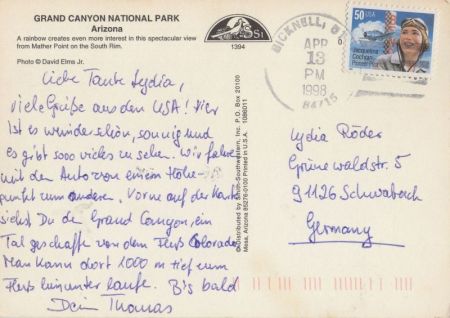 GRAND CANYON NATIONAL PARK
Arizona
A rainbow creates even more interest in this spectacular view
from Mather Point on the South Rim.
Photo © David Elms Jr.
1394
BICKNELL,
APR
13
PM
1998
84715
50 USA
Jacqueline
Cochran
Pioneer Pilot
Liebe Tante Lydia,
viele Grüße aus den USA! Hier
ist es wunderschön, sonnig und
es gibt sooo vieles zu sehen. Wir fahre
mit den Auto von einem Höhe-
punkt zum anderen. Vorne auf der Karte
siehst Du de Grand Canyon, ein
Tal geschaffe von dem Fluss Colorado
Man kann dort 1000 m tief zum
Fluss hinunter laufe. B's bald
Dein Thomas
©Distributed by Smith-Southwestern, Inc. P.O. Box 20100
Mesa, Arizona 85276-0100 Printed in U.S.A. 1086011
Lydia Röder
Grünewaldstr. 5
91126 Schwabach
Germany